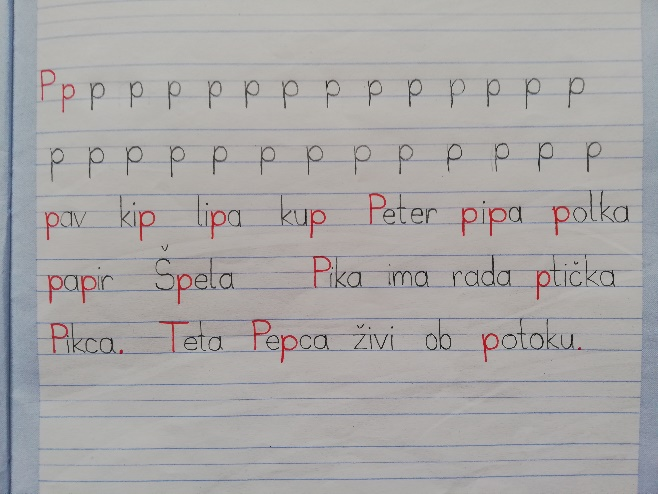 P p p p p p p p p p p p p p p
p p p p p p p p p p p p p
pav kip lipa kup Peter pipa polka
papir Špela Pika ima rada ptička
Pikca. Teta Pepca živi ob potoku.